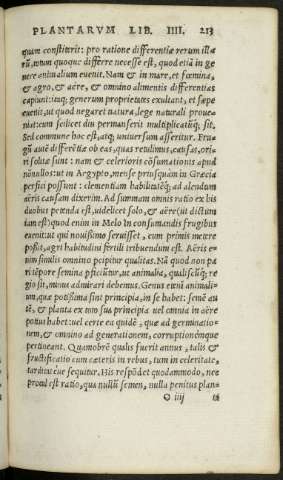 PLANTARVM LIB. IIII. 213
quum constiterit: pro ratione differentiæ rerum illa
rū, utrum quoque differre necesse est, quod etiā in ge
nere animalium euenit. Nam & in mare, et fœmina,
& agro, & aëre, & omnino alimentis differentias
capiunt: itaq; generum proprietates exultant, et sæpe
euenit, ut quod negaret natura, lege naturali proue-
niat: cum scilicet diu permanserit multiplicatūq; sit.
Sed commune hoc est, atq; uniuersum asseritur. Fru
gū autē differētiæ ob eas, quas retulimus, causas, ori
ri solitæ sunt: nam & celerioris cōsumationis apud
nōnullos: ut in Aegypto, mense priusquàm in Græcia
perfici possunt: clementiam habilitatēq; ad alendum
aëris causam dixerim. Ad summam omnis ratio ex his
duobus petenda est, uidelicet solo, & aëre (ut dictum
iam est) quod enim in Melo In consumandis frugibus
euenit ut qui nouissimo seruisset, cum primis metere
possit, agri habitudini fertili tribuendum est. Aëris e-
nim similis omnino pcipitur qualitas. Nā quod non pa
ri tēpore semina pficiūtur, ut animalia, qualiscūq; re
gio sit, minus admirari debemus. Genus enim animali-
um, quæ potissima sint principia, in se habet: semē au
tē, & planta ex non sua principia uel omnia in aëre
potius habet: uel certe ea quidē, quæ ad germinatio-
nem, & omnino ad generationem, corruptionemque
pertineant. Quamobrē qualis fuerit annus, talis &
frudificatio cum cæteris in rebus, tum in celeritate,
tarditateue sequitur. His respōdet quodammodo, nec
procul est ratio, qua nullū semen, nulla penitus plan-
O iiij ta